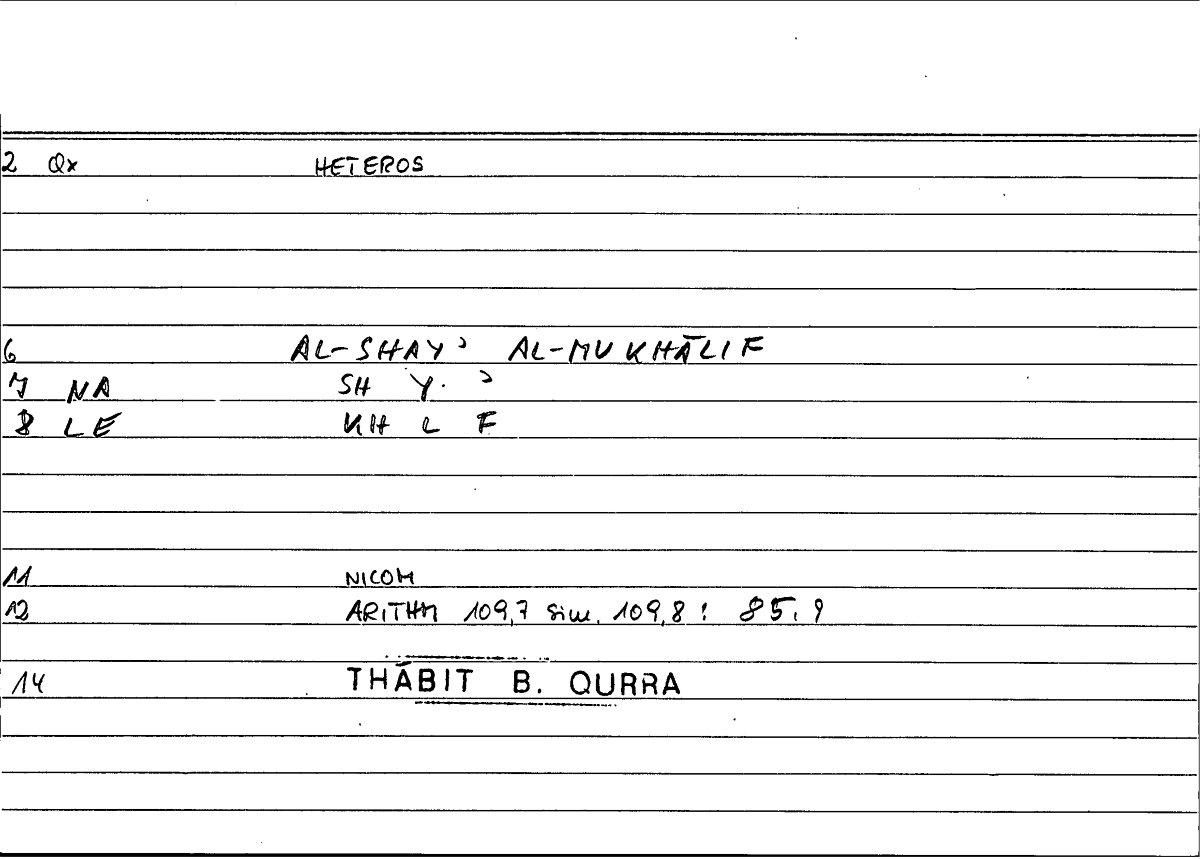 2 Qx HETEROS
6 AL-SHAYʾ AL-MUKHĀLIF
7 NA SH Y ʾ
8 LE KH L F
11 NICOM
12 ARITHM 109,7 sim. 109,8 : 85.9
14 THĀBIT B. QURRA